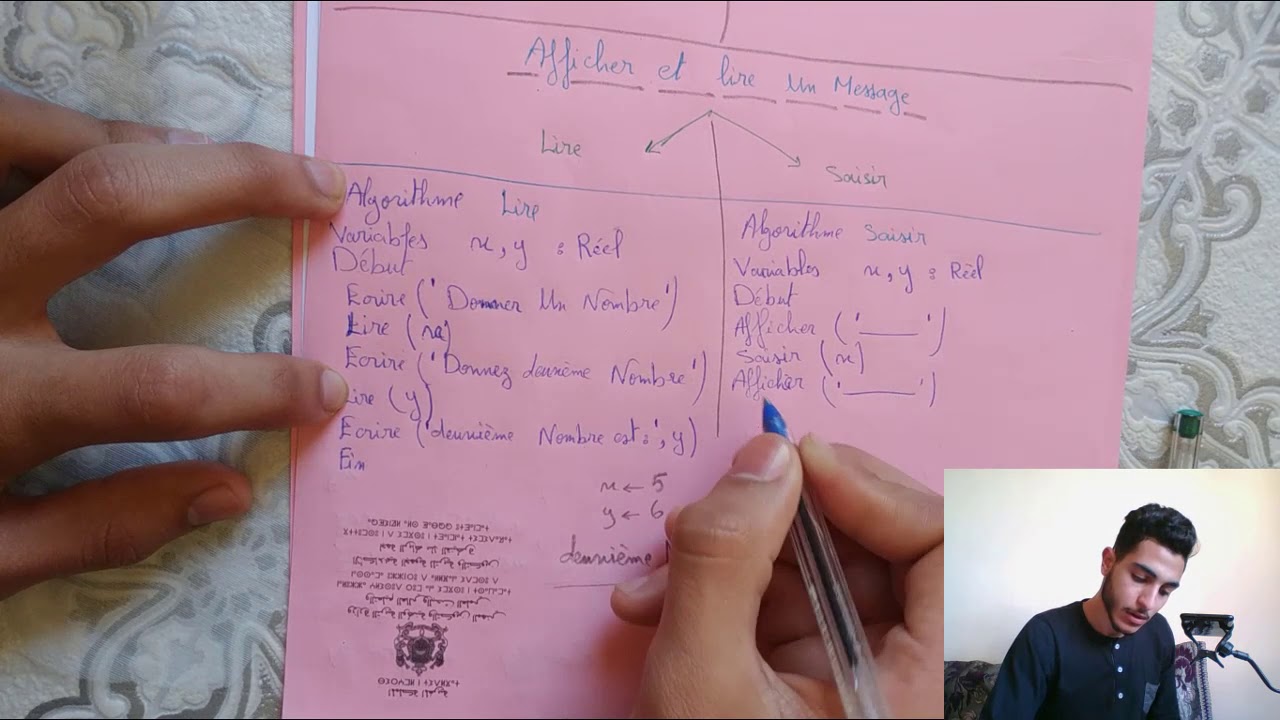 Afficher et lire Un Message
Lire
Saisir
Algorithme Lire
Variables x, y : Réel
Début
Ecrire ('Donner Un Nombre')
Lire (x)
Ecrire ('Donnez deuxième Nombre')
Lire (y)
Ecrire ('deuxième Nombre est:', y)
Fin
x ← 5
y ← 6
deuxième
Algorithme Saisir
Variables x, y : Réel
Début
Afficher ('_____')
Saisir (x)
Afficher ('_____')